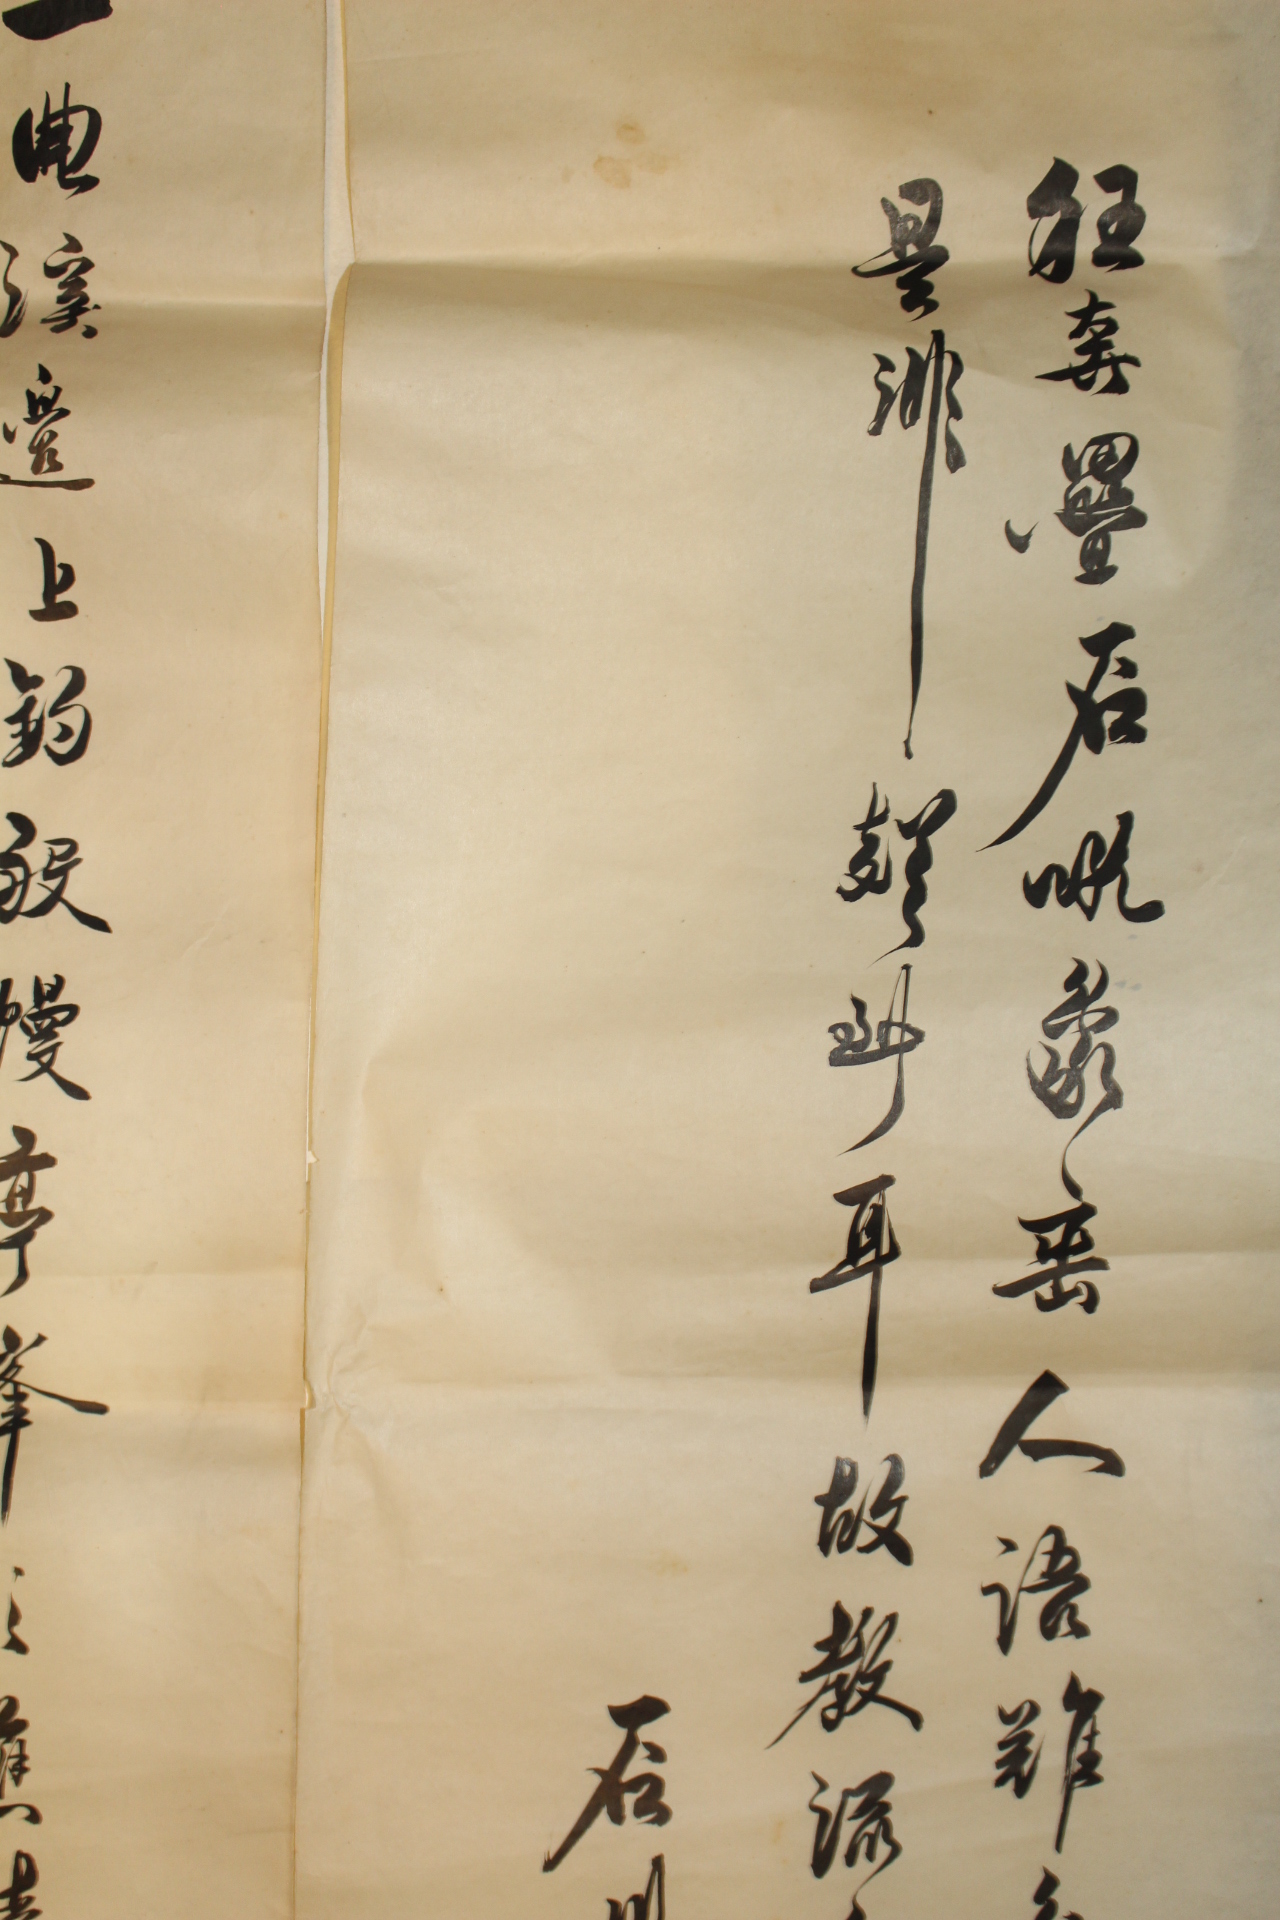 狂奔疊石吼重巒人語難
是非聲到耳故教流
石
一曲溪邊上釣船幔亭峯